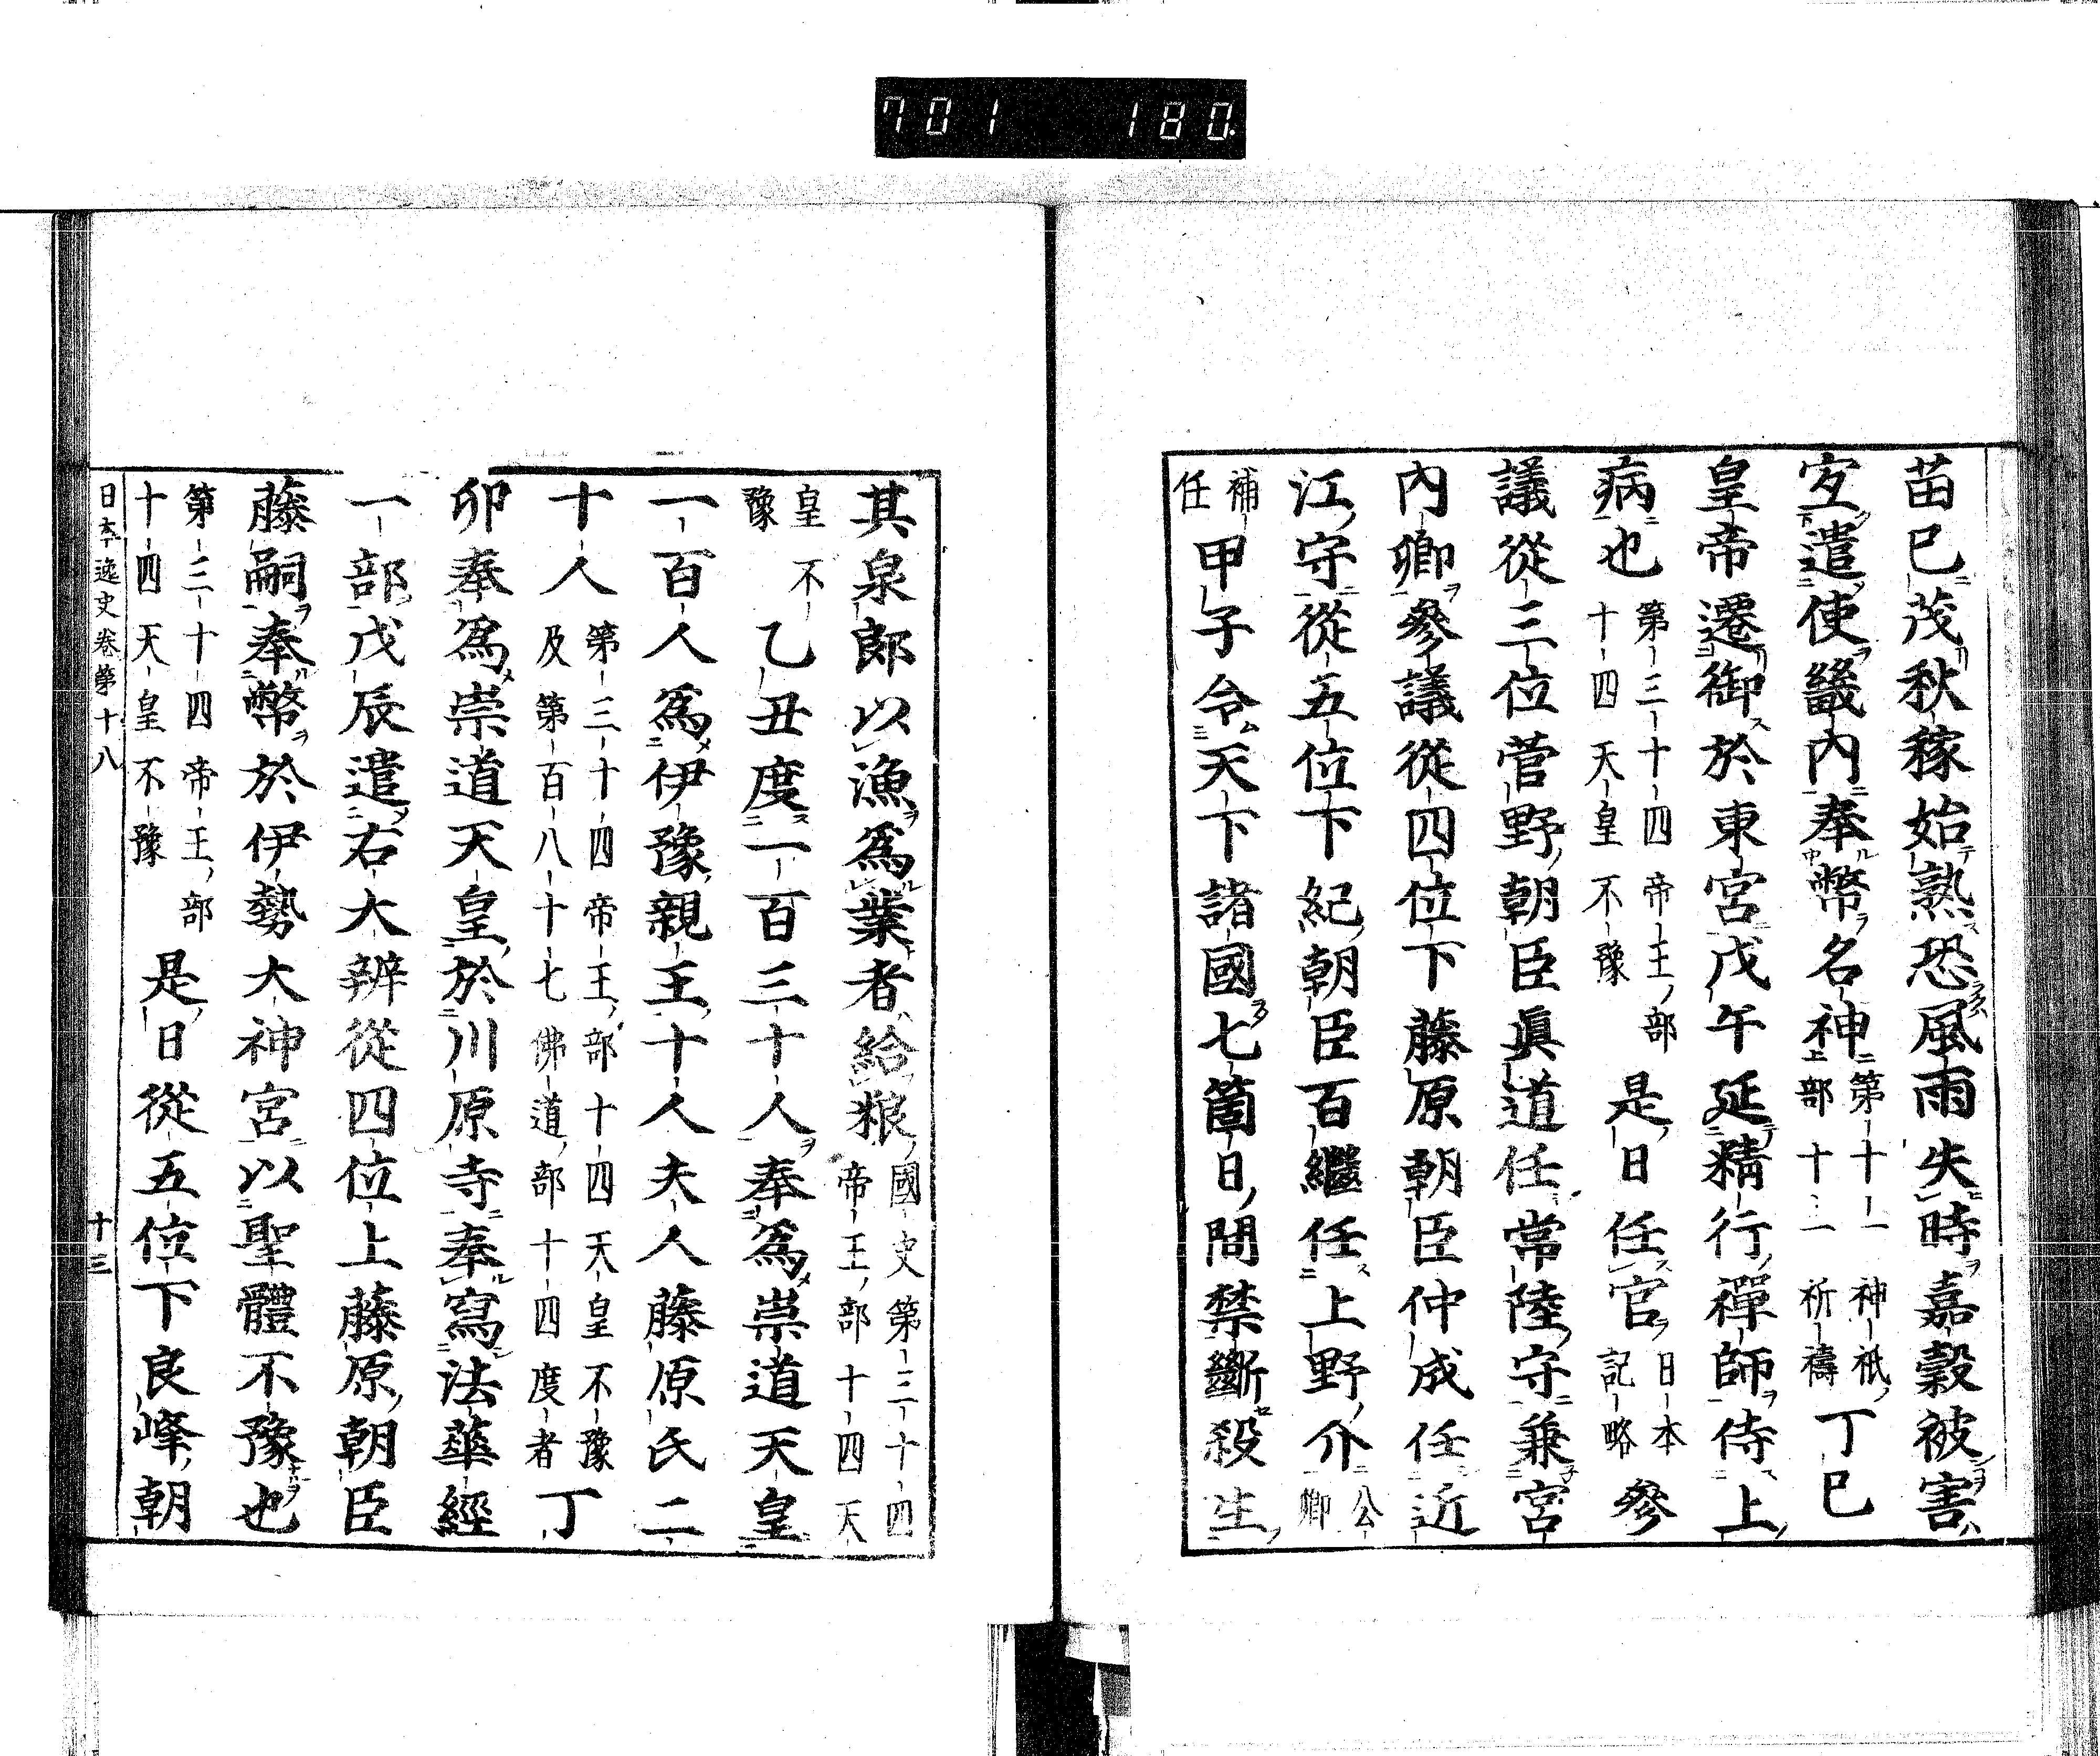 701 180.
苗已茂秋稼始熟恐風雨失時嘉穀被害
宜遣使畿内奉幣名神第十一神祇部十一祈禱丁巳
皇帝遷御於東宮戊午延精行禪師侍上
病也第三十四帝王部十四天皇不豫是日任官日本記略參
議從三位菅野朝臣眞道任常陸守兼宮
内卿參議從四位下藤原朝臣仲成任近
江守從五位下紀朝臣百繼任上野介公卿
補任甲子令天下諸國七箇日間禁斷殺生
其泉郎以漁爲業者給粮國史第三十四帝王部十四天
皇不豫乙丑度一百三十人奉爲崇道天皇
一百人爲伊豫親王十人夫人藤原氏二
十人第三十四帝王部十四天皇不豫及第百八十七佛道部十四度者丁
卯奉爲崇道天皇於川原寺奉寫法華經
一部戊辰遣右大辨從四位上藤原朝臣
藤嗣奉幣於伊勢大神宮以聖體不豫也
第三十四帝王部十四天皇不豫是日從五位下良峰朝
日本逸史卷第十八 十三